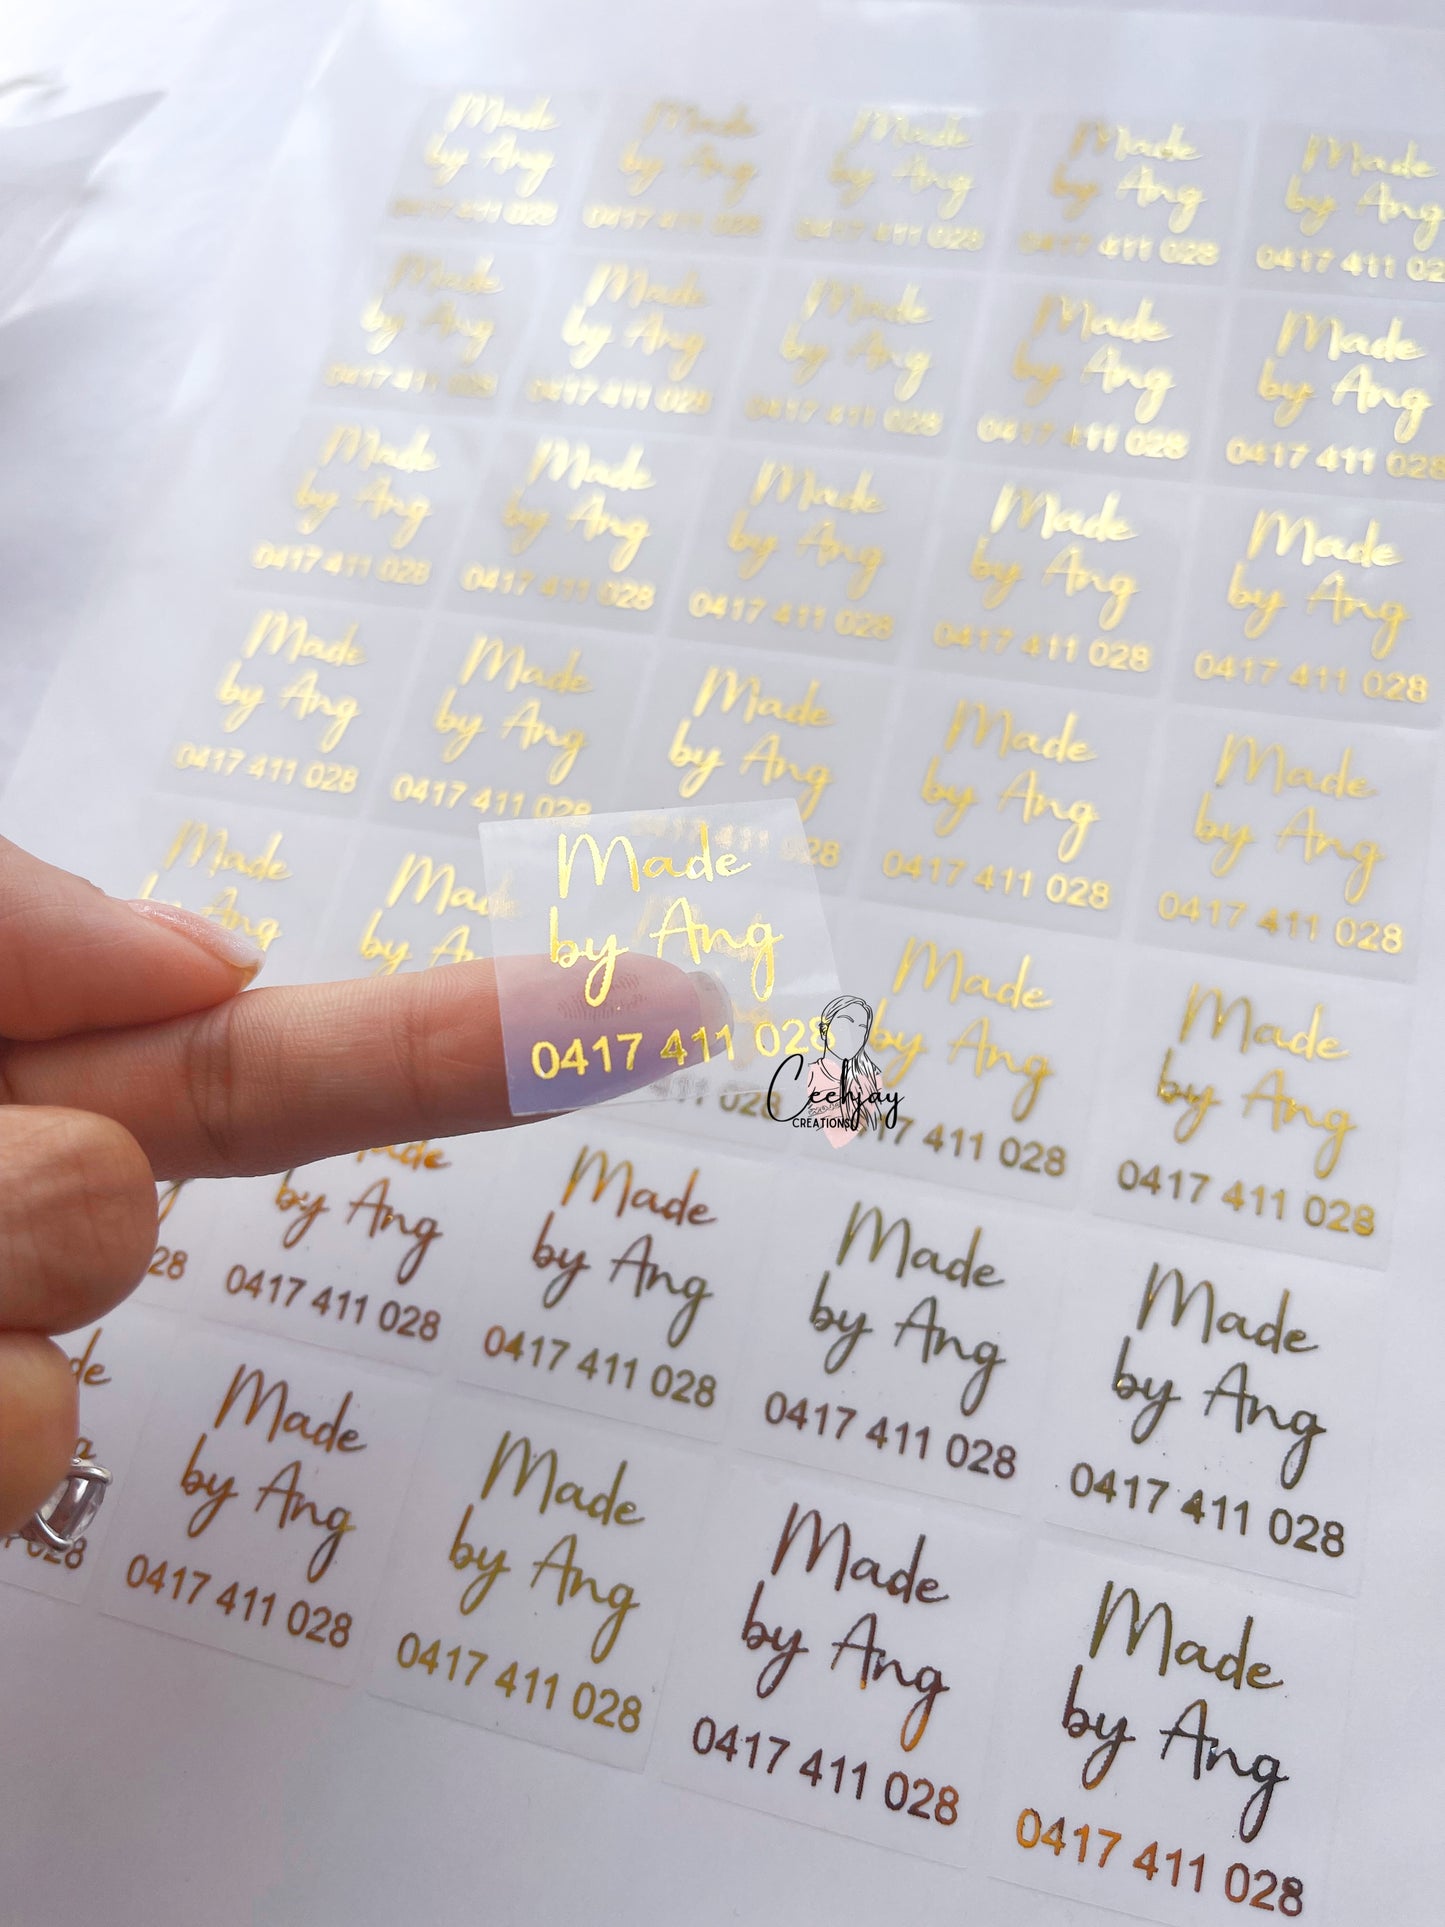 Made
by Ang
0417 411 028
Made
by Ang
0417 411 028
Made
by Ang
0417 411 028
Made
by Ang
0417 411 028
Made
by Ang
0417 411 02
Made
by Ang
0417 411 028
Made
by Ang
0417 411 028
Made
by Ang
0417 411 028
Made
by Ang
0417 411 028
Made
by Ang
0417 411 028
Made
by Ang
0417 411 028
Made
by Ang
0417 411 028
Made
by Ang
0417 411 028
Made
by Ang
0417 411 028
Made
by Ang
0417 411 028
Made
by Ang
0417 411 028
Made
by Ang
0417 411 028
Made
by Ang
28
Made
by Ang
0417 411 028
Made
by Ang
0417 411 028
Made
by Ang
Made
by A
Made
by Ang
0417 411 028
Ceehjay
CREATIONS
Made
by Ang
17 411 028
Made
by Ang
0417 411 028
28
Made
by Ang
0417 411 028
Made
by Ang
0417 411 028
Made
by Ang
0417 411 028
Made
by Ang
0417 411 028
de
028
Made
by Ang
0417 411 028
Made
by Ang
0417 411 028
Made
by Ang
0417 411 028
Made
by Ang
0417 411 028